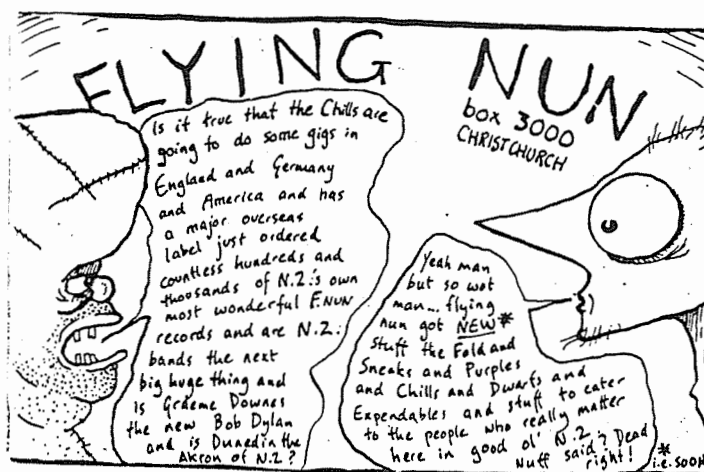 FLYING NUN
box 3000
CHRISTCHURCH
Is it true that the Chills are
going to do some gigs in
England and Germany
and America and has
a major overseas
label just ordered
countless hundreds and
thousands of N.Z.'s own
most wonderful F.NUN
records and are N.Z.
bands the next
big huge thing and
is Graeme Downes
the new Bob Dylan
and is Dunedin the
AKRON of N.Z?
Yeah man
but so wot
man... flying
nun got NEW*
stuff the Fold and
Sneaks and Purples
and Chills and Dwarfs and
Expendables and stuff to cater
to the people who really matter
here in good ol' N.Z.
Nuff said? Dead
right!
* i.e. SOON